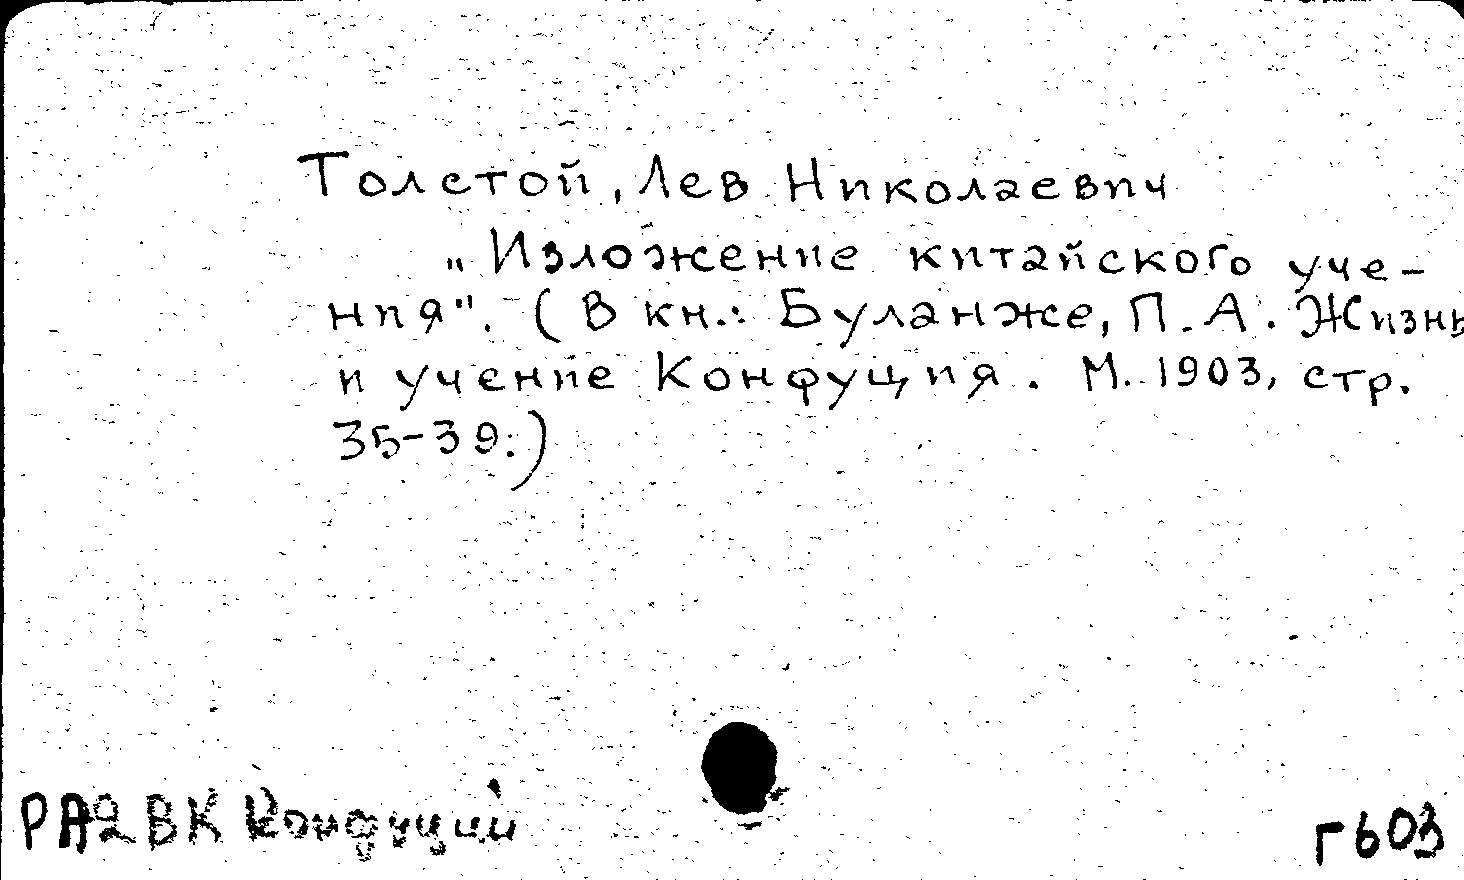 Толстой, Лев Николаевич
„Изложение китайского уче-
ния". (В кн.: Буланже, П. А. Жизнь
и учение Конфуция. М. 1903, стр.
35-39.)
РА2ВК Конфуций
г603